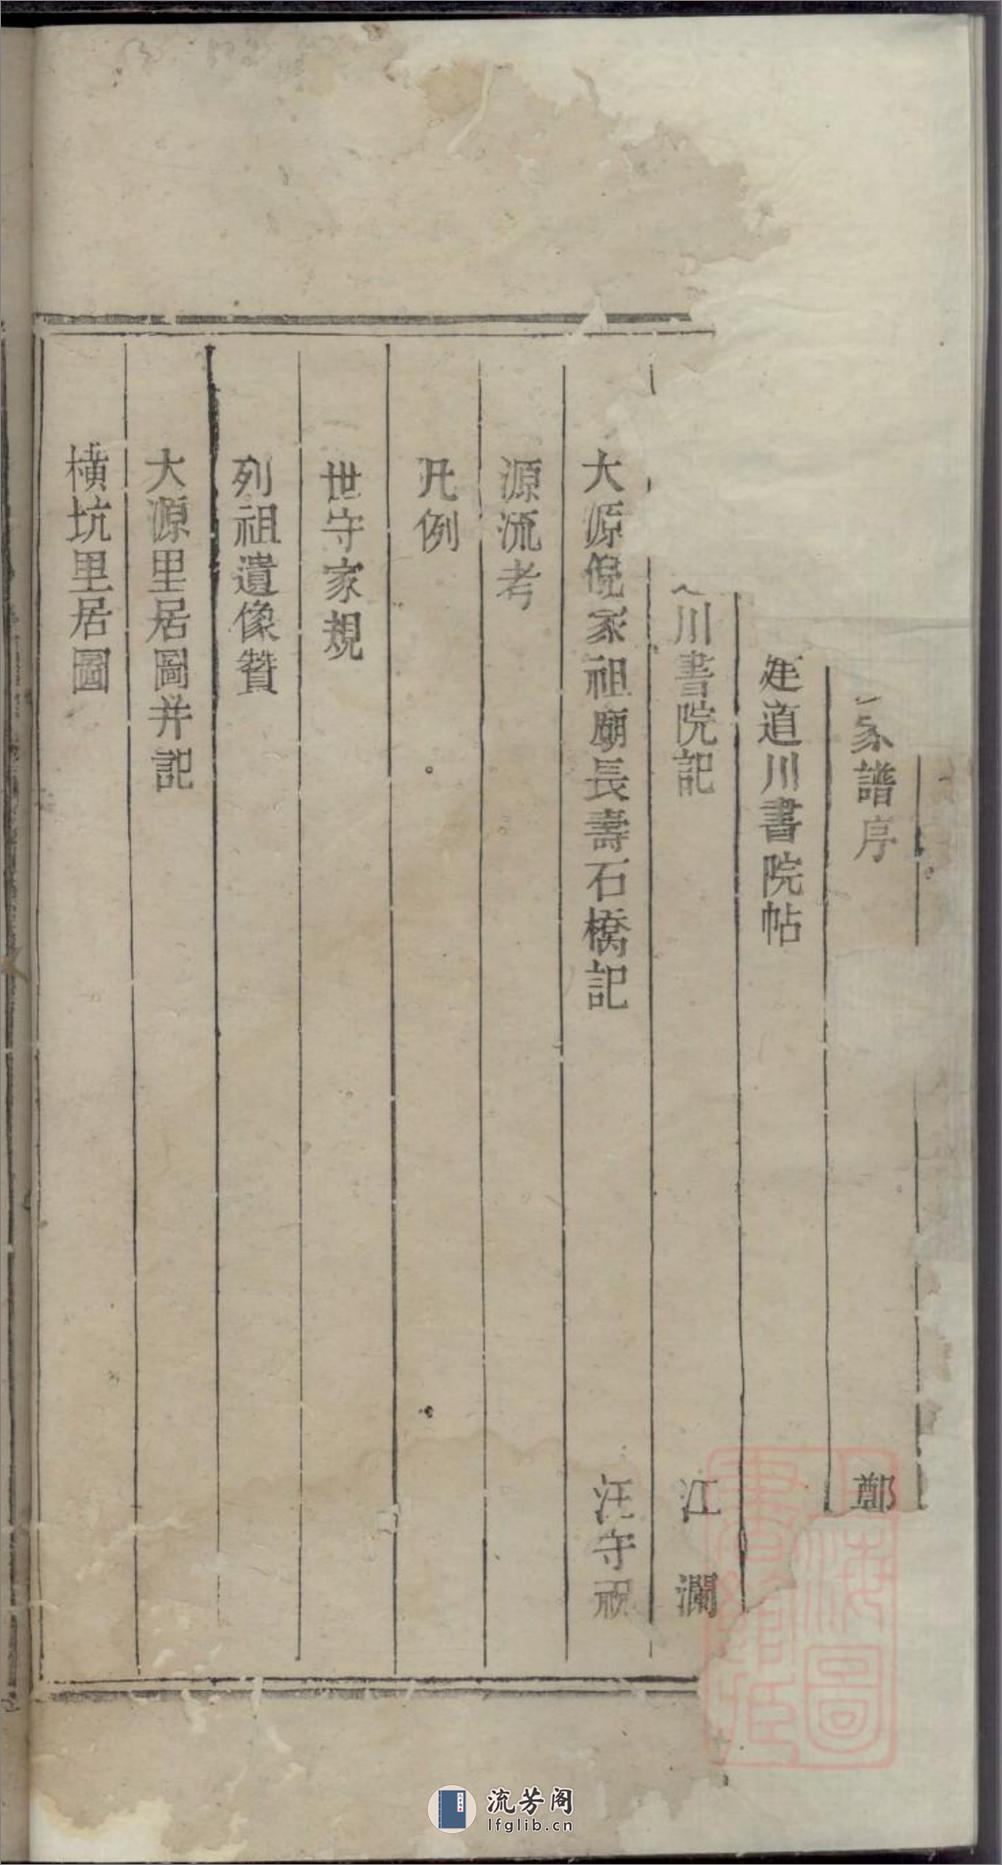 家譜序 鄭
建道川書院帖
川書院記 江瀾
大源倪家祖廟長壽石橋記 汪守
源流考
凡例
世守家規
列祖遺像贊
大源里居圖并記
橫坑里居圖
上海圖書館藏
流芳阁
lfglib.cn